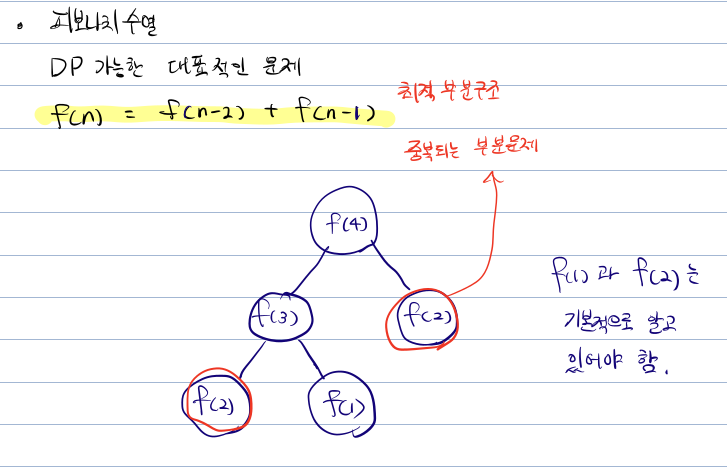 • 피보나치 수열
DP 가능한 대표적인 문제
f(n) = f(n-2) + f(n-1)
최적 부분구조
중복되는 부분문제
f(4)
f(3)
f(2)
f(2)
f(1)
f(1)과 f(2)는
기본적으로 알고
있어야 함.